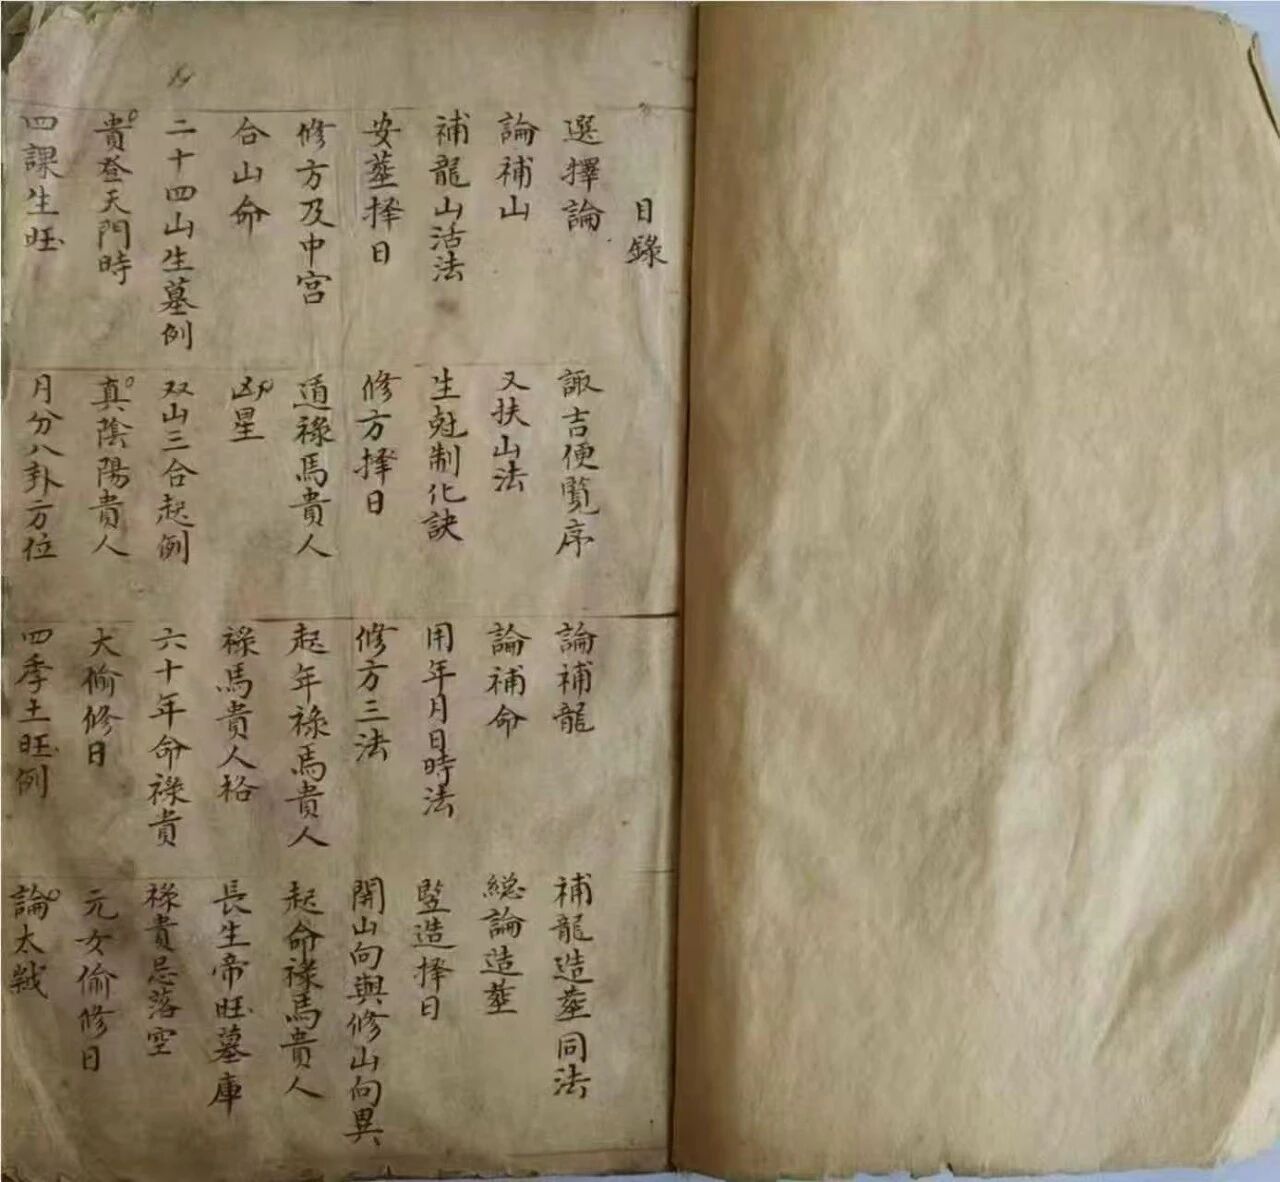 目錄
選擇論 諏吉便覧序 論補龍 補龍造塟同法
論補山 又扶山法 論補命 総論造塟
補龍山活法 生尅制化訣 用年月日時法 竪造择日
安塟择日 修方择日 修方三法 開山向與修山向異
修方及中宫 道祿馬貴人 起年祿馬貴人 起命祿馬貴人
合山命 凶星 祿馬貴人格 長生帝旺墓庫
二十四山生墓例 双山三合起例 六十年命祿貴 祿貴忌落空
貴登天門時 真陰陽貴人 大偷修日 元女偷修日
四課生旺 月分八卦方位 四季土旺例 論太歲